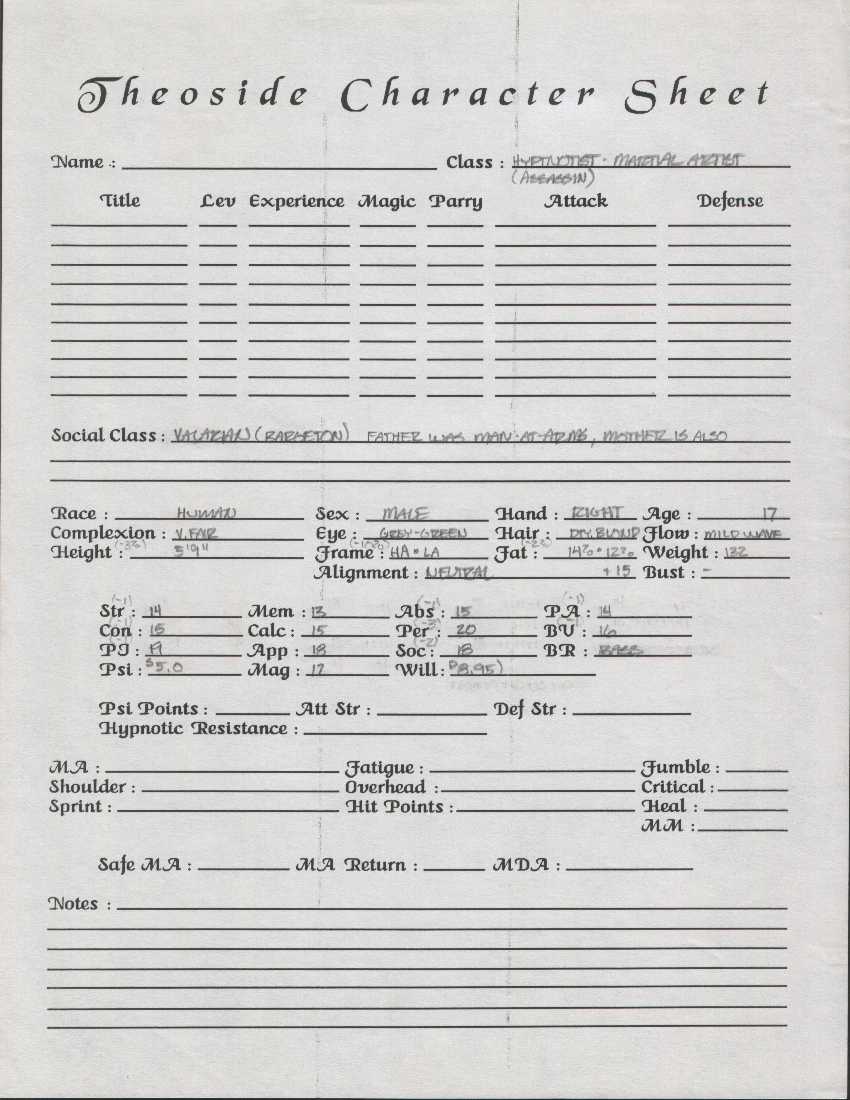 Theoside Character Sheet
Name : Class : HYPNOTIST - MARTIAL ARTIST
(ASSASSIN)
Title Lev Experience Magic Parry Attack Defense
Social Class : VALARIAN (BARBETON) FATHER WAS MAN-AT-ARMS, MOTHER IS ALSO
Race : HUMAN Sex : MALE Hand : RIGHT Age : 17
Complexion : V. FAIR Eye : GREY-GREEN Hair : BLOND Flow : MILD WAVE
Height : 5'9" Frame : HA • LA Fat : 14% • 12% Weight : 132
Alignment : NEUTRAL +15 Bust : -
(-1) (-1) (-1)
Str : 14 Mem : 13 Abs : 15 PA : 14
Con : 15 Calc : 15 Per : 20 BV : 16
PI : App : 18 Soc : 18 BR :
Psi : 5.0 Mag : 17 Will : 8.95)
Psi Points : Att Str : Def Str :
Hypnotic Resistance :
MA : Fatigue : Fumble :
Shoulder : Overhead : Critical :
Sprint : Hit Points : Heal :
MM :
Safe MA : MA Return : MDA :
Notes :